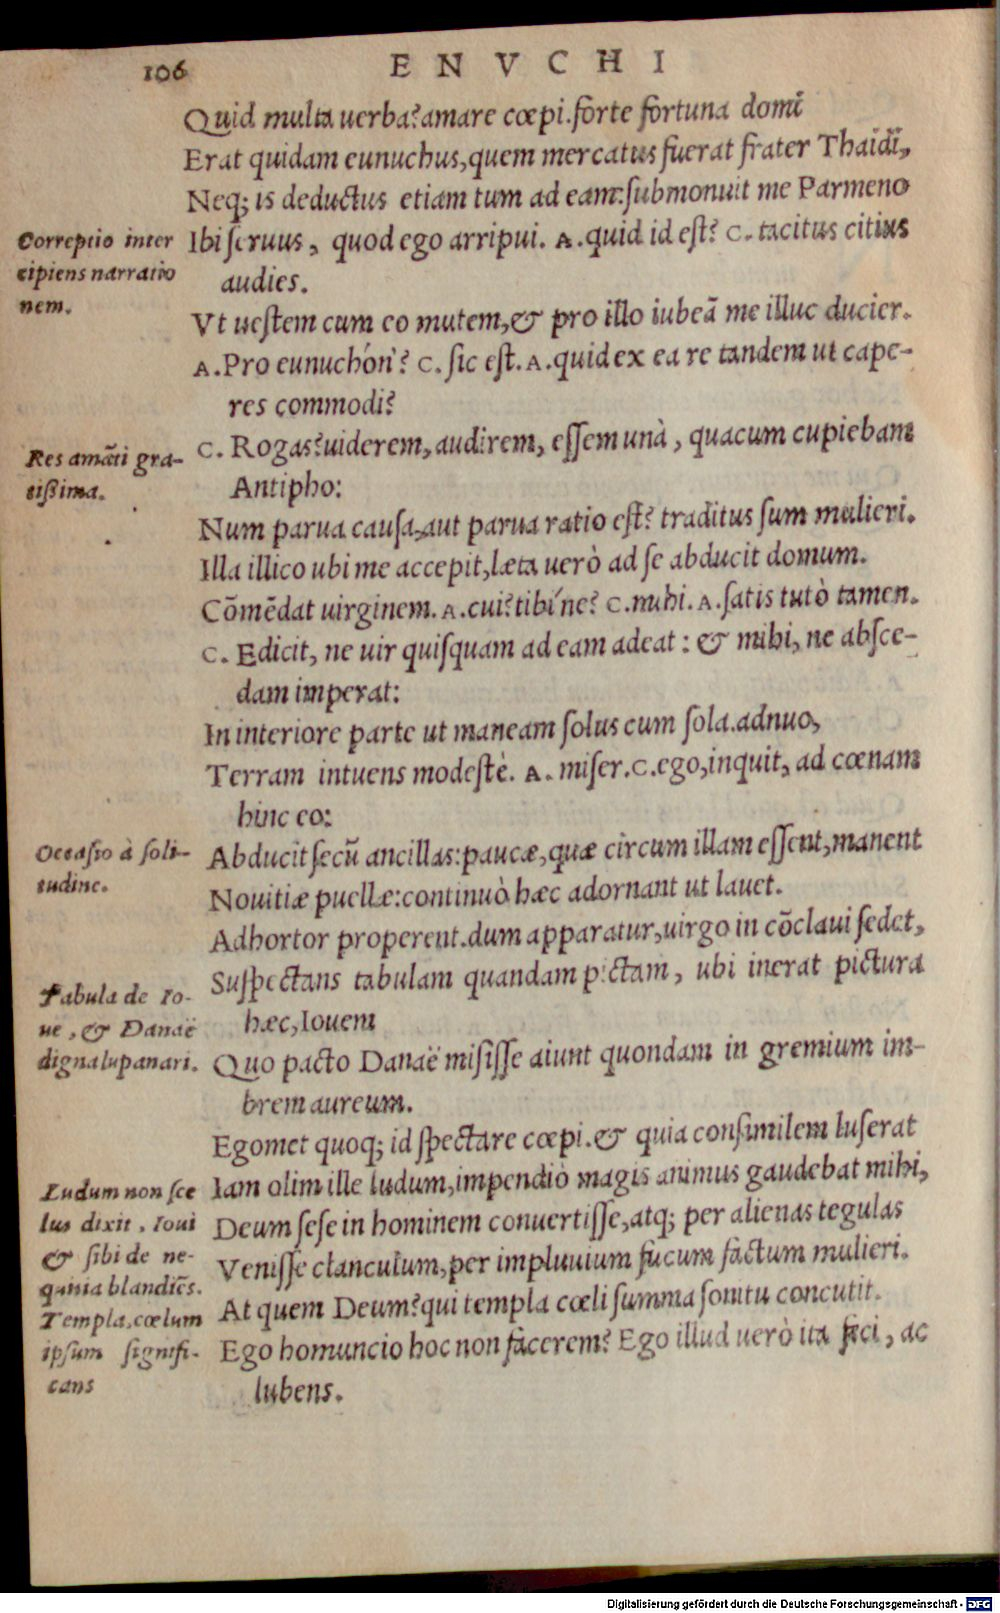 106
ENVCHI
Quid multa uerba? amare cœpi. forte fortuna domĩ
Erat quidam eunuchus, quem mercatus fuerat frater Thaidĩ,
Neq; is deductus etiam tum ad eam: submonuit me Parmeno
Correptio inter
cipiens narratio
nem.
Ibi seruus, quod ego arripui. A. quid id est? C. tacitus citius
audies.
Vt uestem cum eo mutem, & pro illo iubeã me illuc ducier.
A. Pro eunuchón'? C. sic est. A. quid ex ea re tandem ut cape-
res commodi?
Res amãti gra-
tissima.
C. Rogas? uiderem, audirem, essem unà, quacum cupiebam
Antipho:
Num parua causa, aut parua ratio est? traditus sum mulieri.
Illa illico ubi me accepit, læta uerò ad se abducit domum.
Cõmẽdat uirginem. A. cui? tibi'ne? C. mihi. A. satis tutò tamen.
C. Edicit, ne uir quisquam ad eam adeat: & mihi, ne absce-
dam imperat:
In interiore parte ut maneam solus cum sola. adnuo,
Terram intuens modestè. A. miser. C. ego, inquit, ad cœnam
hinc eo:
Occasio à soli-
tudine.
Abducit secũ ancillas: paucæ, quæ circum illam essent, manent
Nouitiæ puellæ: continuò hæc adornant ut lauet.
Adhortor properent. dum apparatur, uirgo in cõclaui sedet,
Suspectans tabulam quandam pictam, ubi inerat pictura
hæc, Iouem
Fabula de Io-
ue, & Danaë
digna lupanari.
Quo pacto Danaë misisse aiunt quondam in gremium im-
brem aureum.
Egomet quoq; id spectare cœpi. & quia consimilem luserat
Iam olim ille ludum, impendiò magis animus gaudebat mihi,
Ludum non sce
lus dixit, Ioui
& sibi de ne-
quitia blandiẽs.
Templa, cœlum
ipsum signifi-
cans
Deum sese in hominem conuertisse, atq; per alienas tegulas
Venisse clanculum, per impluuium fucum factum mulieri.
At quem Deum? qui templa cœli summa sonitu concutit.
Ego homuncio hoc non facerem? Ego illud uerò ita feci, ac
lubens.
Digitalisierung gefördert durch die Deutsche Forschungsgemeinschaft - DFG